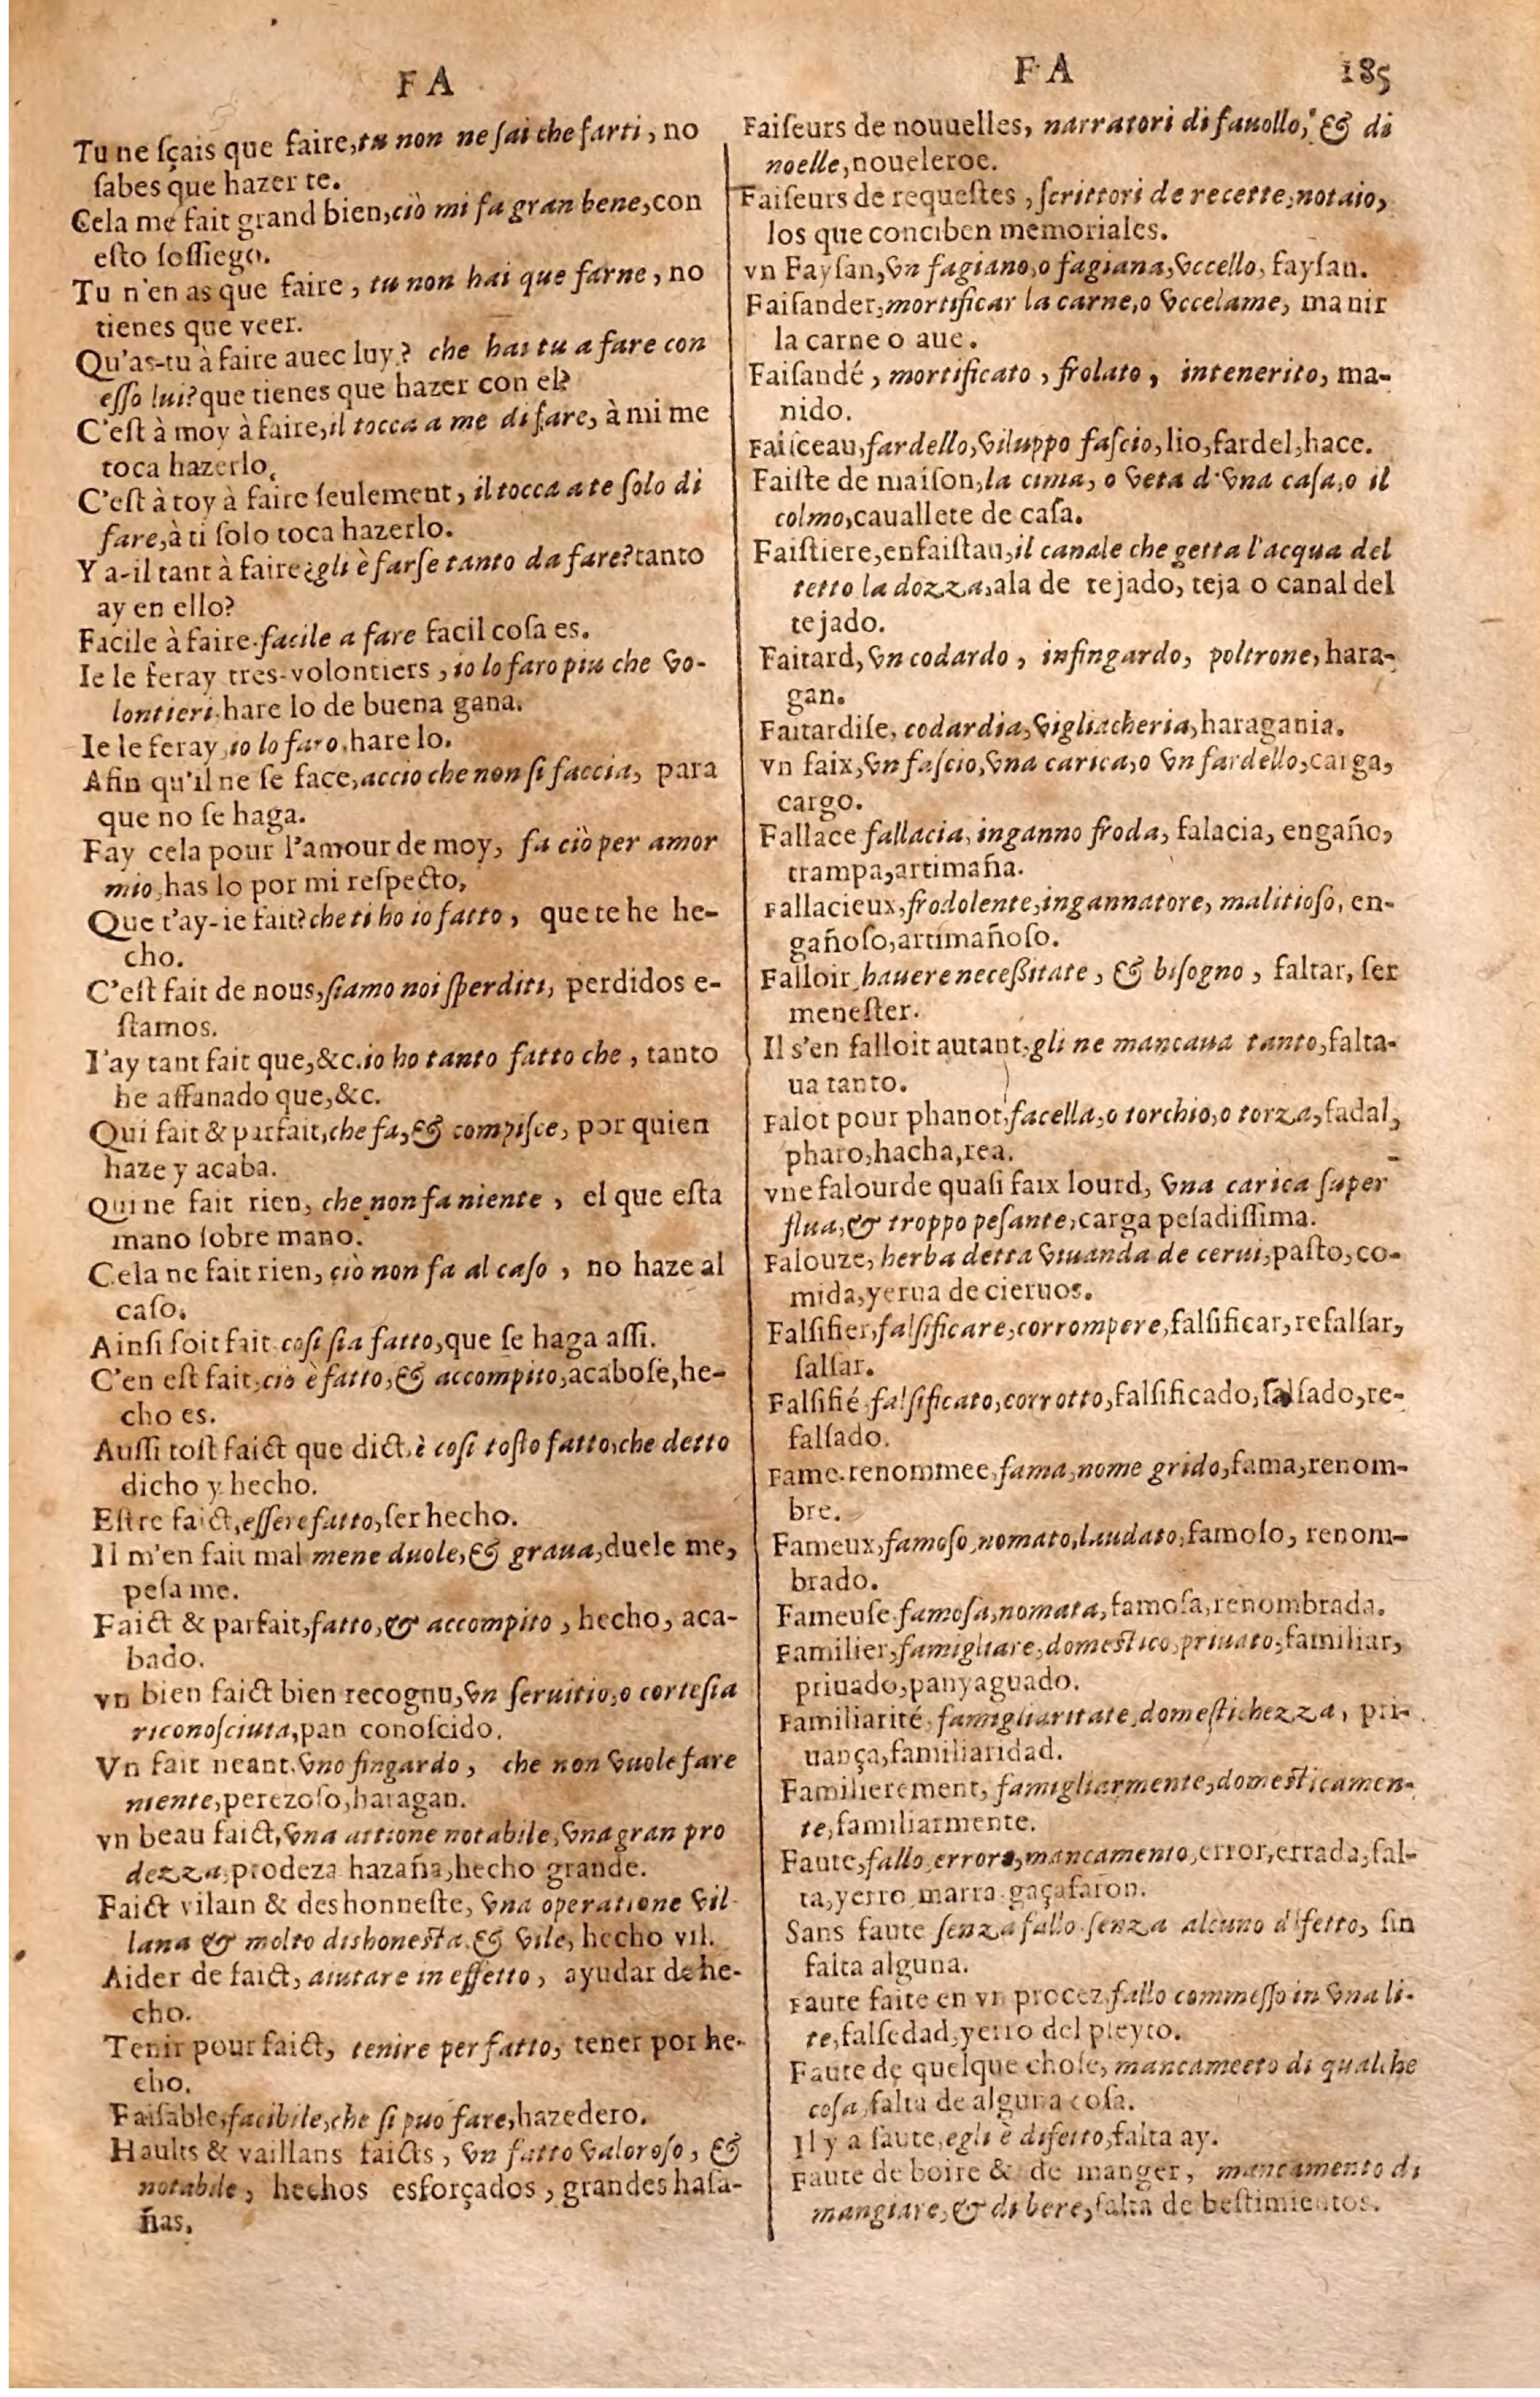 FA
Tu ne ſçais que faire,tu non ne ſai che farti, no
ſabes que hazer te.
Cela me fait grand bien,ciò mi fa gran bene,con
eſto ſoſſiego.
Tu n'en as que faire, tu non hai que farne, no
tienes que veer.
Qu'as-tu à faire auec luy? che hai tu a fare con
eſſo lui?que tienes que hazer con el?
C'eſt à moy à faire,il tocca a me di fare, à mi me
toca hazerlo.
C'eſt à toy à faire ſeulement, il tocca a te ſolo di
fare,à ti ſolo toca hazerlo.
Y a-il tant à faire?gli è farſe tanto da fare?tanto
ay en ello?
Facile à faire.facile a fare facil coſa es.
Ie le feray tres-volontiers, io lo faro piu che vo-
lontieri.hare lo de buena gana.
Ie le feray,io lo faro,hare lo.
Afin qu'il ne ſe face,accio che non ſi faccia, para
que no ſe haga.
Fay cela pour l'amour de moy, fa ciò per amor
mio,has lo por mi reſpecto,
Que t'ay-ie fait?che ti ho io fatto, que te he he-
cho.
C'eſt fait de nous,ſiamo noi ſperditi, perdidos e-
ſtamos.
I'ay tant fait que,&c.io ho tanto fatto che, tanto
he affanado que,&c.
Qui fait & parfait,che fa,& compiſce, por quien
haze y acaba.
Qui ne fait rien, che non fa niente, el que eſta
mano ſobre mano.
Cela ne fait rien, ciò non fa al caſo, no haze al
caſo.
Ainſi ſoit fait coſi ſia fatto,que ſe haga aſſi.
C'en eſt fait,cio è fatto,& accompito,acaboſe,he-
cho es.
Auſſi toſt faict que dict.è coſi toſto fatto,che detto
dicho y hecho.
Eſtre faict,eſſere fatto,ſer hecho.
Il m'en fait mal mene duole,& graua,duele me,
peſa me.
Faict & parfait,fatto,& accompito, hecho, aca-
bado.
vn bien faict bien recognu,vn ſeruitio,o corteſia
riconoſciuta,pan conoſcido.
Vn fait neant.vno fingardo, che non vuole fare
niente,perezoſo,haragan.
vn beau faict,vna attione notabile,vna gran pro
dezza,prodeza hazaña,hecho grande.
Faict vilain & deshonneſte, vna operatione vil-
lana & molto dishoneſta.& vile, hecho vil.
Aider de faict, aiutare in effetto, ayudar de he-
cho.
Tenir pour faict, tenire per fatto, tener por he-
cho.
Faiſable,facibile,che ſi puo fare,hazedero.
Haults & vaillans faicts, vn fatto valoroſo, &
notabile, hechos esforçados, grandes haſa-
ñas.
FA 185
Faiſeurs de nouuelles, narratori di fauollo, & di
noelle,noueleroe.
Faiſeurs de requeſtes, ſcrittori de recette,notaio,
los que conciben memoriales.
vn Fayſan,vn fagiano,o fagiana,vccello, fayſan.
Faiſander,mortificar la carne,o vccelame, manir
la carne o aue.
Faiſandé, mortificato, frolato, intenerito, ma-
nido.
Faiſceau,fardello,viluppo faſcio,lio,fardel,hace.
Faiſte de maiſon,la cima, o veta d'vna caſa,o il
colmo,cauallete de caſa.
Faiſtiere,enfaiſtau,il canale che getta l'acqua del
tetto la dozza,ala de tejado, teja o canal del
tejado.
Faitard, vn codardo, infingardo, poltrone, hara-
gan.
Faitardiſe, codardia,vigliacheria,haragania.
vn faix,vn faſcio,vna carica,o vn fardello,carga,
cargo.
Fallace fallacia, inganno froda, falacia, engaño,
trampa,artimaña.
Fallacieux,frodolente,ingannatore, malitioſo, en-
gañoſo,artimañoſo.
Falloir hauere neceßitate, & biſogno, faltar, ſer
meneſter.
Il s'en falloit autant,gli ne mancaua tanto,falta-
ua tanto.
Falot pour phanot,facella,o torchio,o torza,fadal,
pharo,hacha,rea.
vne falourde quaſi faix lourd, vna carica ſuper
flua,& troppo peſante,carga peſadiſſima.
Falouze, herba detta viuanda de cerui,paſto,co-
mida,yerua de cieruos.
Falſifier,falſificare,corrompere,falſificar,refalſar,
falſar.
Falſifié falſificato,corrotto,falſificado,falſado,re-
falſado.
Fame.renommee,fama,nome grido,fama,renom-
bre.
Fameux,famoſo,nomato,laudato,famoſo, renom-
brado.
Fameuſe.famoſa,nomata,famoſa,renombrada.
Familier,famigliare,domeſtico,priuato,familiar,
priuado,panyaguado.
Familiarité,famigliaritate,domeſtichezza, pri-
uança,familiaridad.
Familierement, famigliarmente,domeſticamen-
te,familiarmente.
Faute,fallo,errore,mancamento,error,errada,fal-
ta,yerro marra gaçafaron.
Sans faute ſenza fallo ſenza alcuno difetto, ſin
falta alguna.
Faute faite en vn procez,fallo commeſſo in vna li-
te,falſedad,yerro del pleyto.
Faute de quelque choſe, mancameeto di qualche
coſa,falta de alguna coſa.
Il y a faute,egli è difetto,falta ay.
Faute de boire & de manger, mancamento di
mangiare,& di bere,falta de beſtimientos.